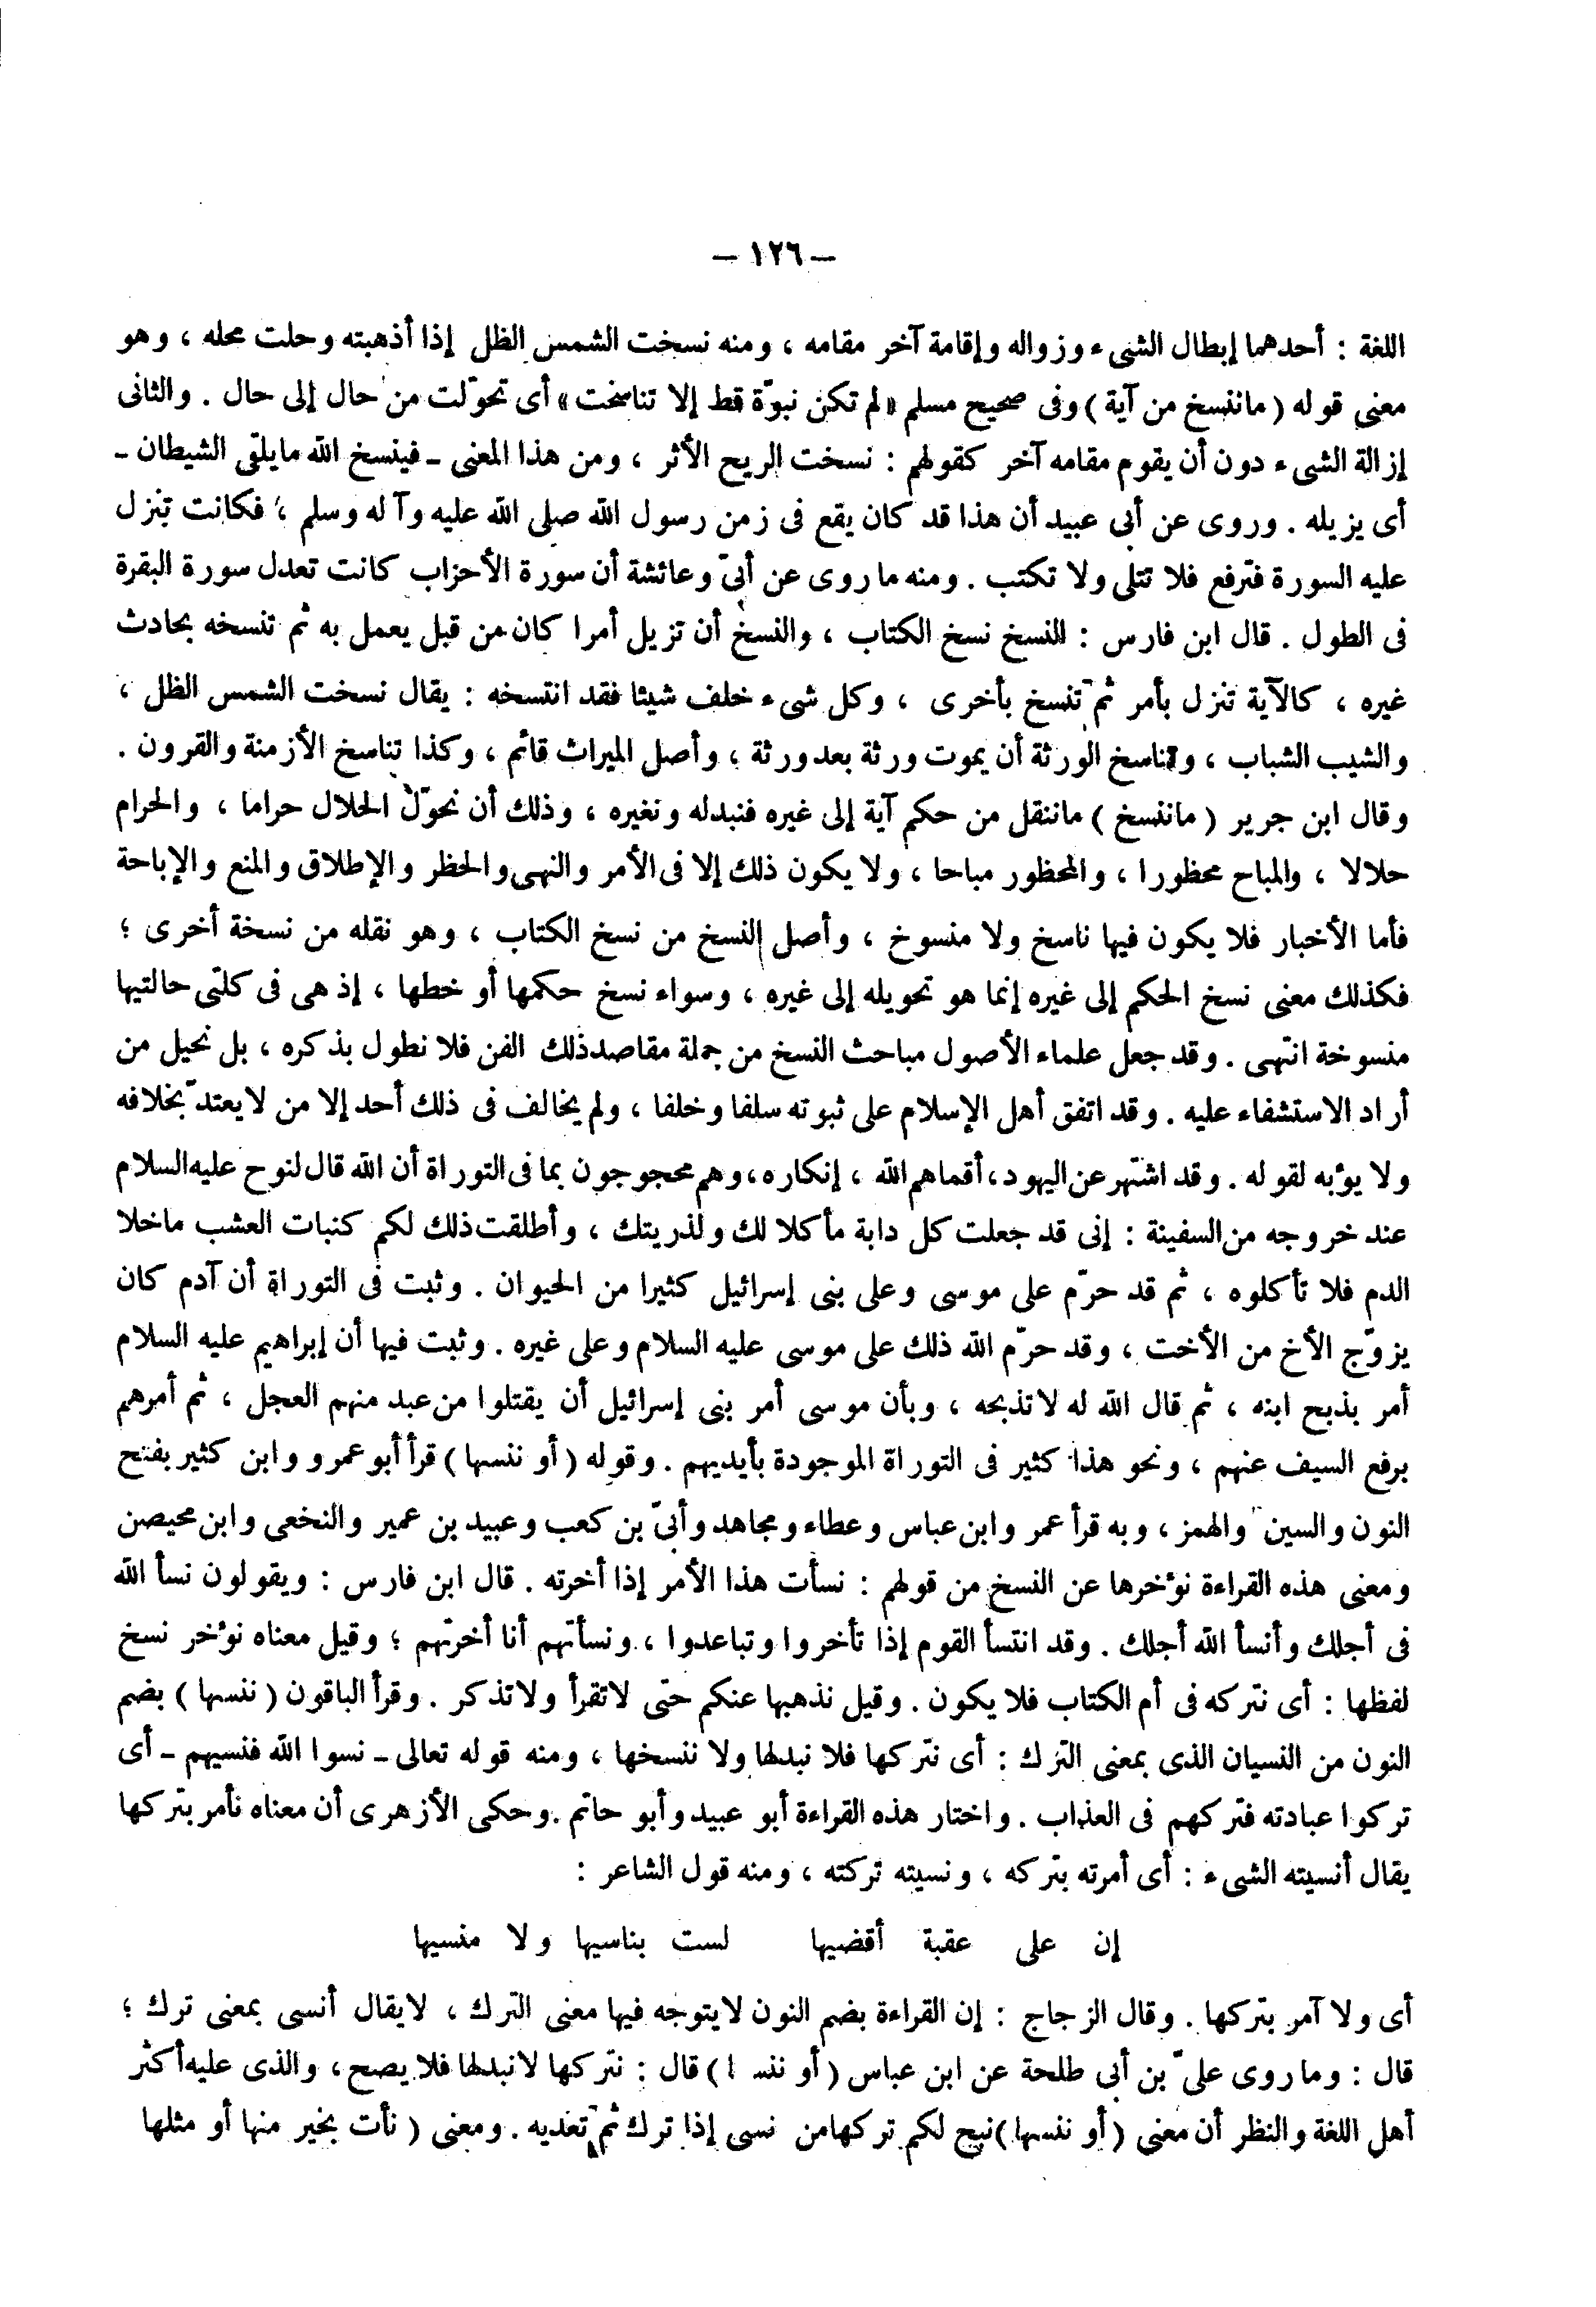 – ١٢٦ –
اللغة : أحدهما إبطال الشىء وزواله وإقامة آخر مقامه ، ومنه نسخت الشمس الظل إذا أذهبته وحلت محله ، وهو
معنى قوله ( ماننسخ من آية ) وفى صحيح مسلم « لم تكن نبوّة قط إلا تناسخت » أى تحوّلت من حال إلى حال . والثانى
إزالة الشىء دون أن يقوم مقامه آخر كقولهم : نسخت الريح الأثر ، ومن هذا المعنى ـ فينسخ الله مايلقى الشيطان ـ
أى يزيله . وروى عن أبى عبيد أن هذا قد كان يقع فى زمن رسول الله صلى الله عليه وآله وسلم ، فكانت تنزل
عليه السورة فترفع فلا تتلى ولا تكتب . ومنه ماروى عن أبىّ وعائشة أن سورة الأحزاب كانت تعدل سورة البقرة
فى الطول . قال ابن فارس : النسخ نسخ الكتاب ، والنسخ أن تزيل أمرا كان من قبل يعمل به ثم تنسخه بحادث
غيره ، كالآية تنزل بأمر ثم تنسخ بأخرى ، وكل شىء خلف شيئا فقد انتسخه : يقال نسخت الشمس الظل ،
والشيب الشباب ، وتناسخ الورثة أن يموت ورثة بعد ورثة ، وأصل الميراث قائم ، وكذا تناسخ الأزمنة والقرون .
وقال ابن جرير ( ماننسخ ) ماننقل من حكم آية إلى غيره فنبدله ونغيره ، وذلك أن نحوّل الحلال حراما ، والحرام
حلالا ، والمباح محظورا ، والمحظور مباحا ، ولا يكون ذلك إلا فى الأمر والنهى والحظر والإطلاق والمنع والإباحة
فأما الأخبار فلا يكون فيها ناسخ ولا منسوخ ، وأصل النسخ من نسخ الكتاب ، وهو نقله من نسخة أخرى ؛
فكذلك معنى نسخ الحكم إلى غيره إنما هو تحويله إلى غيره ، وسواء نسخ حكمها أو خطها ، إذ هى فى كلتى حالتيها
منسوخة انتهى . وقد جعل علماء الأصول مباحث النسخ من جملة مقاصد ذلك الفن فلا نطول بذكره ، بل نحيل من
أراد الاستشفاء عليه . وقد اتفق أهل الإسلام على ثبوته سلفا وخلفا ، ولم يخالف فى ذلك أحد إلا من لايعتدّ بخلافه
ولا يؤبه لقوله . وقد اشتهر عن اليهود ، أقماهم الله ، إنكاره ، وهم محجوجون بما فى التوراة أن الله قال لنوح عليه السلام
عند خروجه من السفينة : إنى قد جعلت كل دابة مأكلا لك ولذريتك ، وأطلقت ذلك لكم كنبات العشب ماخلا
الدم فلا تأكلوه ، ثم قد حرّم على موسى وعلى بنى إسرائيل كثيرا من الحيوان . وثبت فى التوراة أن آدم كان
يزوّج الأخ من الأخت ، وقد حرّم الله ذلك على موسى عليه السلام وعلى غيره . وثبت فيها أن إبراهيم عليه السلام
أمر بذبح ابنه ، ثم قال الله له لاتذبحه ، وبأن موسى أمر بنى إسرائيل أن يقتلوا من عبد منهم العجل ، ثم أمرهم
برفع السيف عنهم ، ونحو هذا كثير فى التوراة الموجودة بأيديهم . وقوله ( أو ننسها ) قرأ أبو عمرو وابن كثير بفتح
النون والسين والهمز ، وبه قرأ عمر وابن عباس وعطاء ومجاهد وأبىّ بن كعب وعبيد بن عمير والنخعى وابن محيصن
ومعنى هذه القراءة نؤخرها عن النسخ من قولهم : نسأت هذا الأمر إذا أخرته . قال ابن فارس : ويقولون نسأ الله
فى أجلك وأنسأ الله أجلك . وقد انتسأ القوم إذا تأخروا وتباعدوا ، ونسأتهم أنا أخرتهم ؛ وقيل معناه نؤخر نسخ
لفظها : أى نتركه فى أم الكتاب فلا يكون . وقيل نذهبها عنكم حتى لاتقرأ ولاتذكر . وقرأ الباقون ( ننسها ) بضم
النون من النسيان الذى بمعنى الترك : أى نتركها فلا نبدلها ولا ننسخها ، ومنه قوله تعالى ـ نسوا الله فنسيهم ـ أى
تركوا عبادته فتركهم فى العذاب . واختار هذه القراءة أبو عبيد وأبو حاتم . وحكى الأزهرى أن معناه نأمر بتركها
يقال أنسيته الشىء : أى أمرته بتركه ، ونسيته تركته ، ومنه قول الشاعر :
إن على عقبة أقضيها لست بناسيها ولا منسيها
أى ولا آمر بتركها . وقال الزجاج : إن القراءة بضم النون لايتوجه فيها معنى الترك ، لايقال أنسى بمعنى ترك ؛
قال : وماروى علىّ بن أبى طلحة عن ابن عباس ( أو ننسـ ا ) قال : نتركها لانبدلها فلا يصح ، والذى عليه أكثر
أهل اللغة والنظر أن معنى ( أو ننسها ) نبح لكم تركها من نسى إذا ترك ثم تعديه . ومعنى ( نأت بخير منها أو مثلها